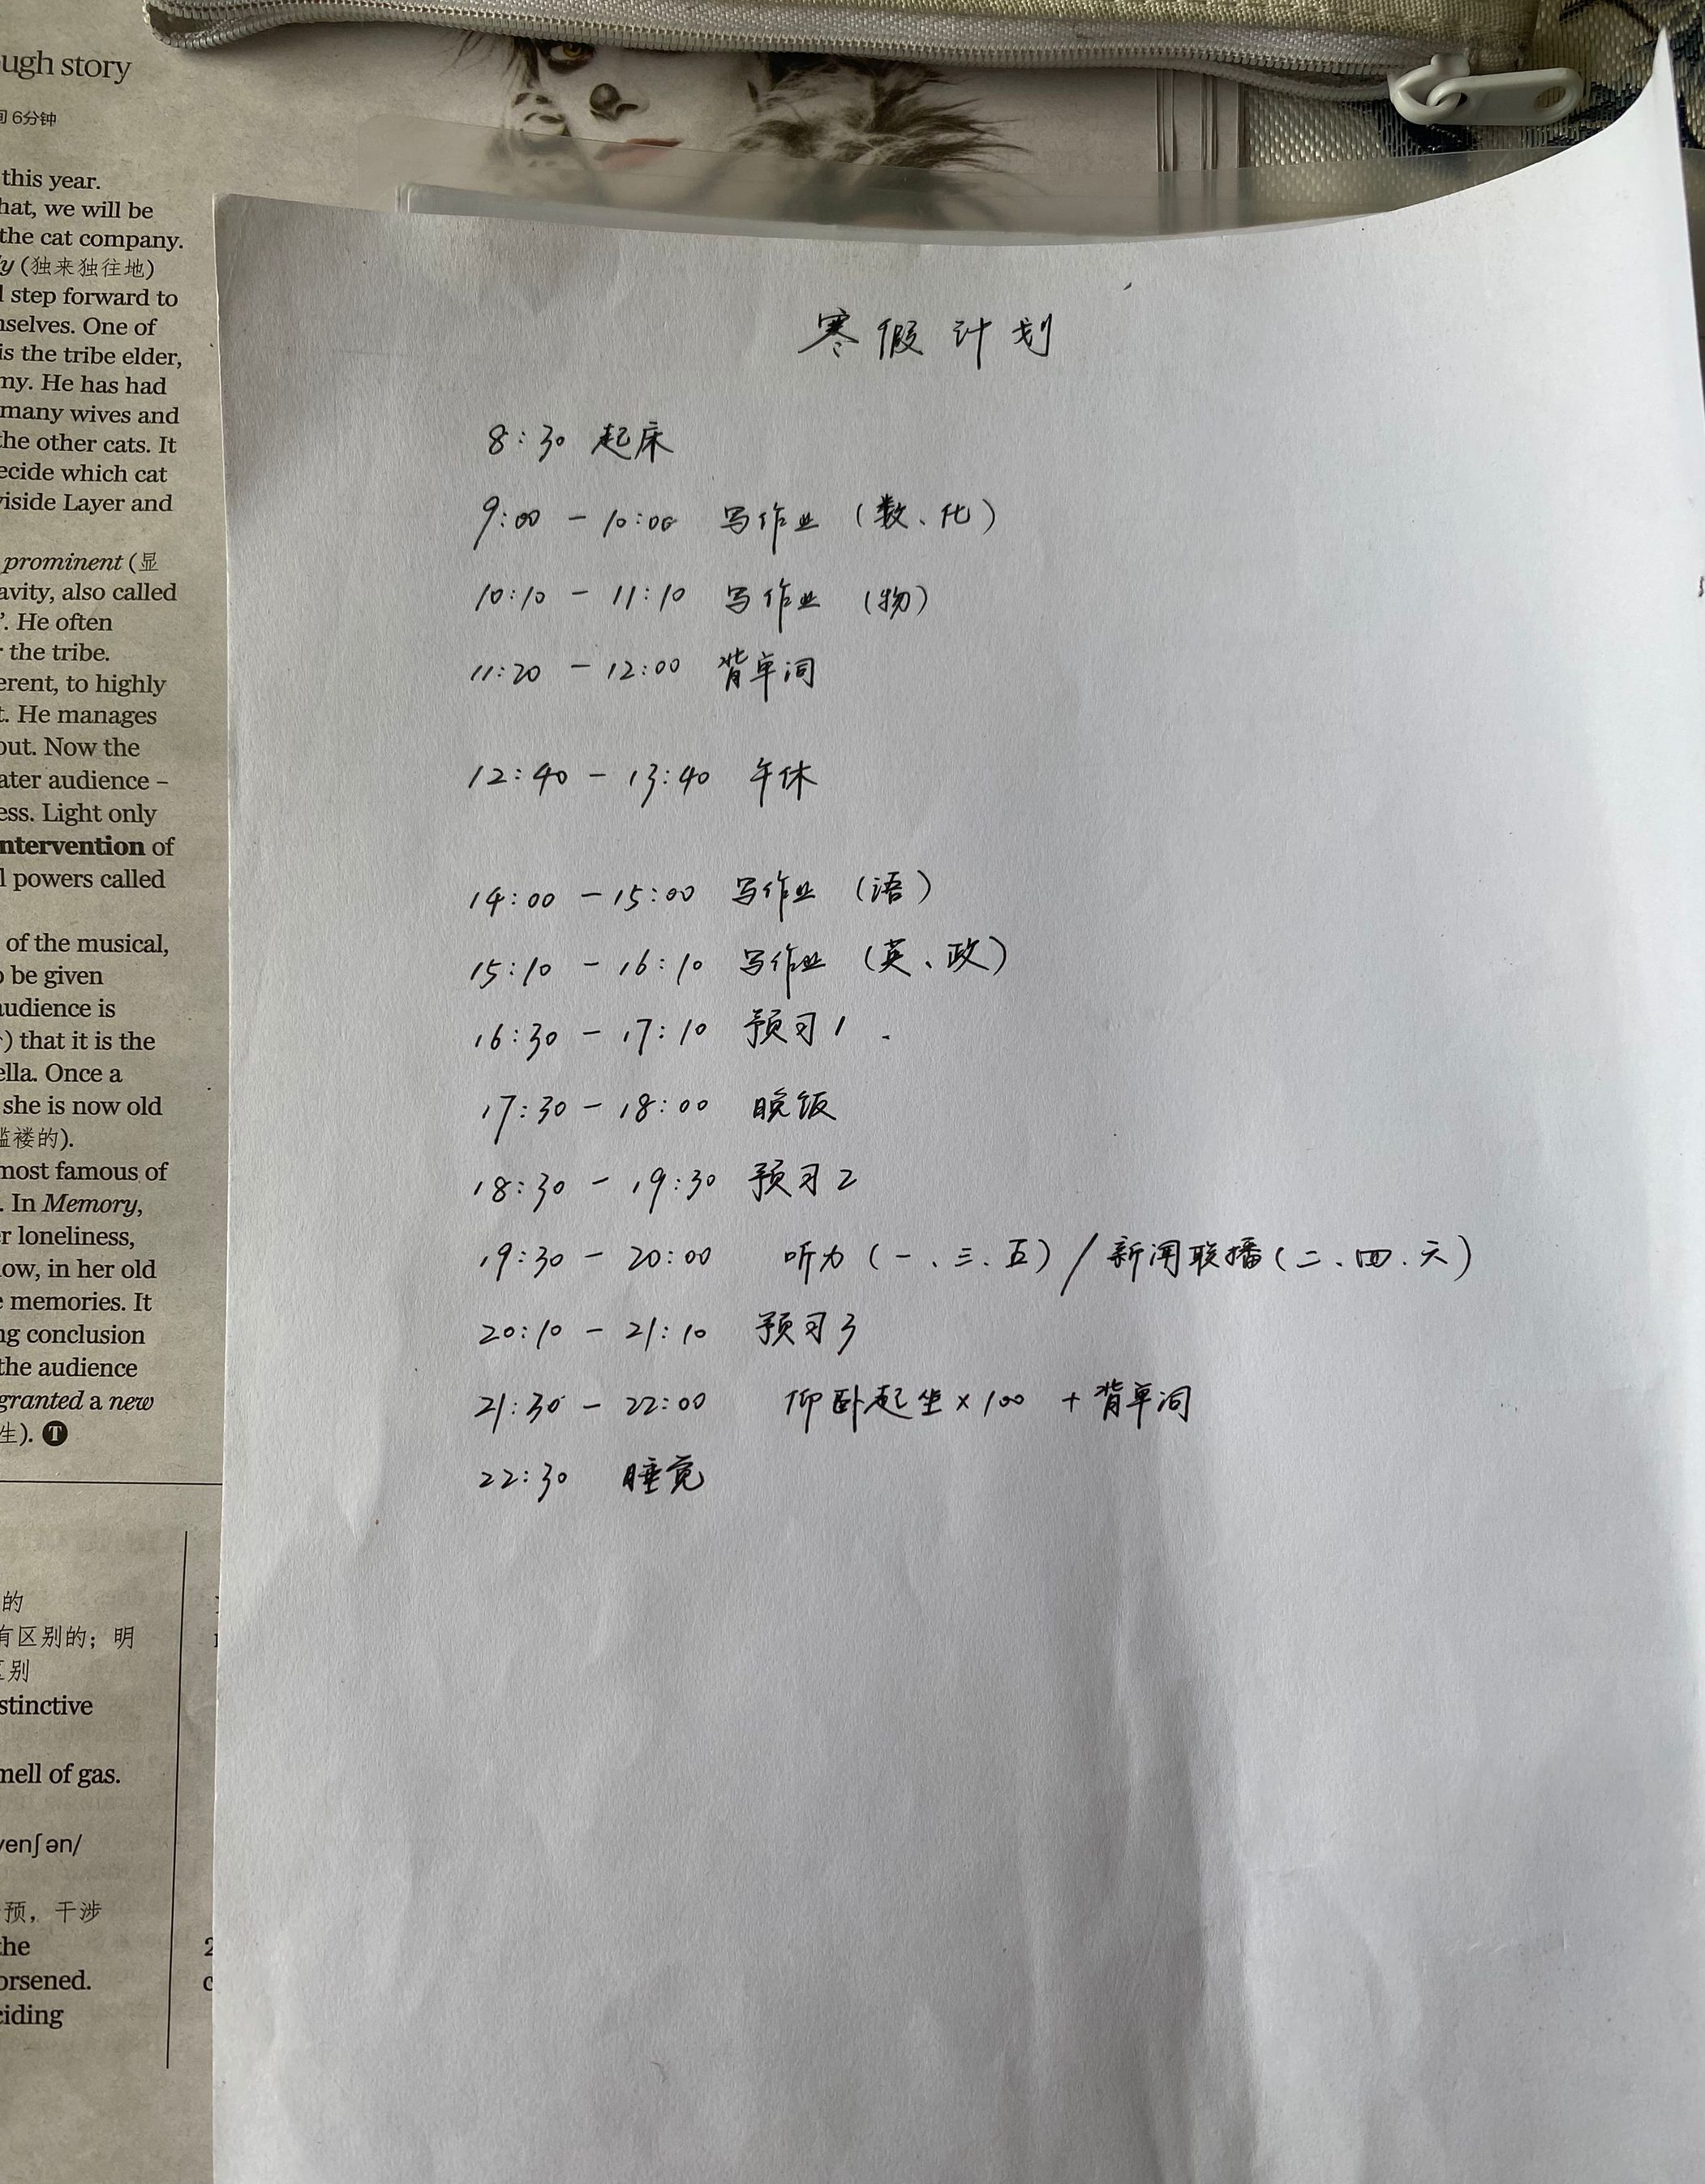 ugh story
6分钟
this year.
hat, we will be
the cat company.
y (独来独往地)
step forward to
nselves. One of
is the tribe elder,
my. He has had
many wives and
the other cats. It
ecide which cat
viside Layer and
prominent (显
avity, also called
'. He often
the tribe.
erent, to highly
t. He manages
out. Now the
ater audience –
ess. Light only
ntervention of
l powers called
of the musical,
o be given
audience is
) that it is the
ella. Once a
she is now old
褴褛的).
most famous of
. In Memory,
er loneliness,
ow, in her old
e memories. It
ng conclusion
the audience
granted a new
生). T
的
有区别的；明
区别
stinctive
mell of gas.
venʃən/
预，干涉
the
orsened.
ciding
2
c
寒假计划
8:30 起床
9:00 - 10:00 写作业 (数、化)
10:10 - 11:10 写作业 (物)
11:20 - 12:00 背单词
12:40 - 13:40 午休
14:00 - 15:00 写作业 (语)
15:10 - 16:10 写作业 (英、政)
16:30 - 17:10 预习1
17:30 - 18:00 晚饭
18:30 - 19:30 预习2
19:30 - 20:00 听力 (一、三、五) / 新闻联播 (二、四、六)
20:10 - 21:10 预习3
21:30 - 22:00 仰卧起坐×100 + 背单词
22:30 睡觉